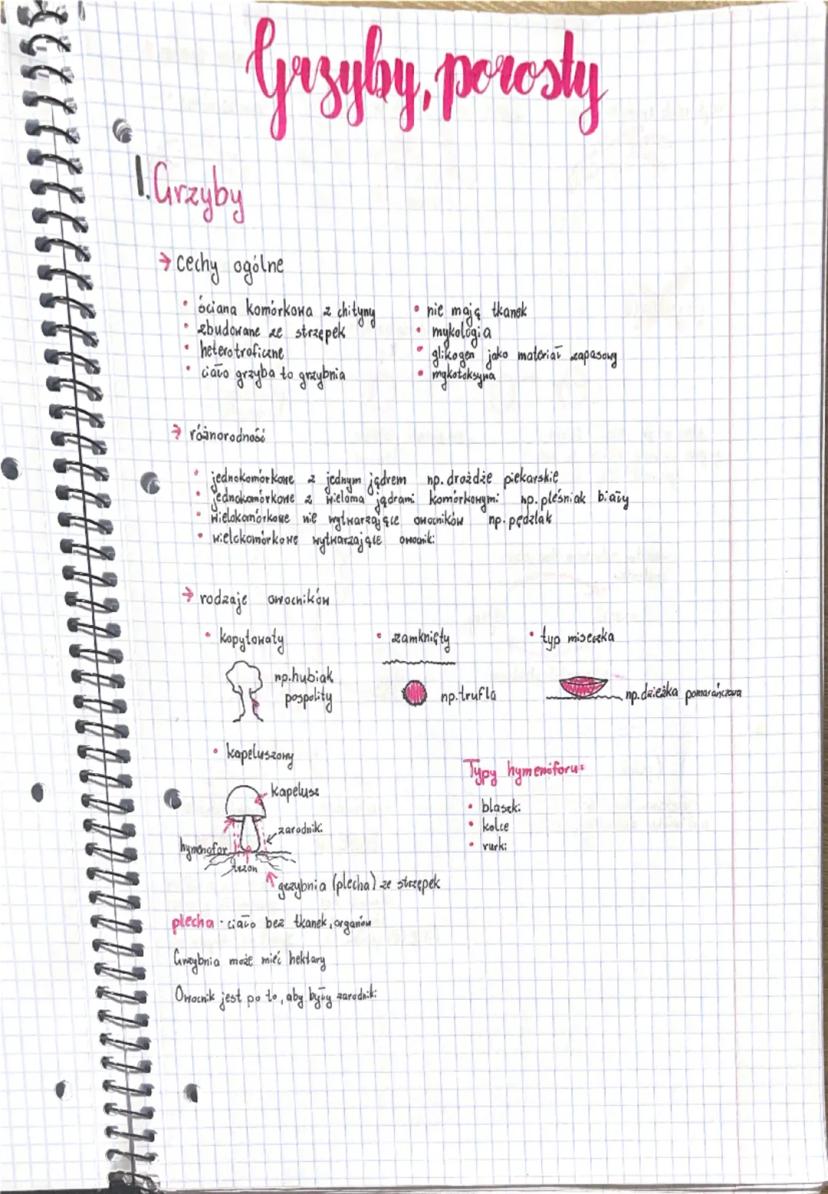 Grzyby, porosty
1. Grzyby
→ cechy ogólne
• ściana komórkowa z chityny
• zbudowane ze strzępek
• heterotroficzne
• ciało grzyba to grzybnia
• nie mają tkanek
• mykologia
• glikogen jako materiał zapasowy
• mykotoksyna
→ różnorodność
• jednokomórkowe z jednym jądrem np. drożdże piekarskie
• jednokomórkowe z wieloma jądrami komórkowymi np. pleśniak biały
• wielokomórkowe nie wytwarzające owocników np. pędzlak
• wielokomórkowe wytwarzające owocniki
→ rodzaje owocników
• kopytowaty
• zamknięty
• typ miseczka
np. hubiak
pospolity
np. trufla
np. dzieżka pomarańczowa
• kapeluszowy
kapelusz
zarodniki
hymenofor
trzon
grzybnia (plecha) ze strzępek
Typy hymenoforu:
• blaszki
• kolce
• rurki
plecha - ciało bez tkanek, organów
Grzybnia może mieć hektary
Owocnik jest po to, aby były zarodniki